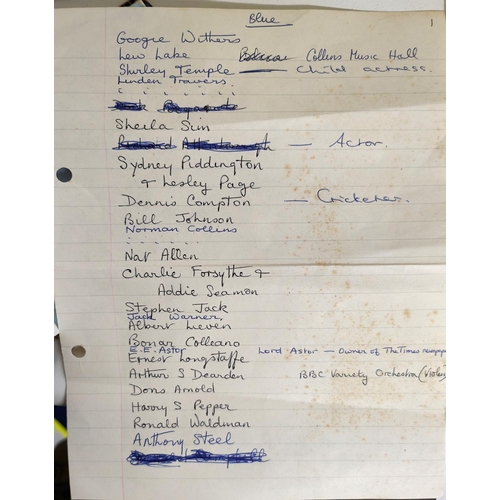 Blue
1
Googie Withers
Lew Lake Collins Music Hall
Shirley Temple — Child actress.
Linden Travers.
Sheila Sim
Richard Attenborough — Actor.
Sydney Piddington
& Lesley Page
Dennis Compton — Cricketer.
Bill Johnson
Norman Collins
Nat Allen
Charlie Forsythe &
Addie Seamon
Stephen Jack
Jack Warner,
Albert Lieven
Bonar Colleano
E.E. Astor Lord Astor — Owner of The Times newspaper
Ernest Longstaffe
Arthur S Dearden BBC Variety Orchestra (Violin)
Doris Arnold
Harry S Pepper
Ronald Waldman
Anthony Steel